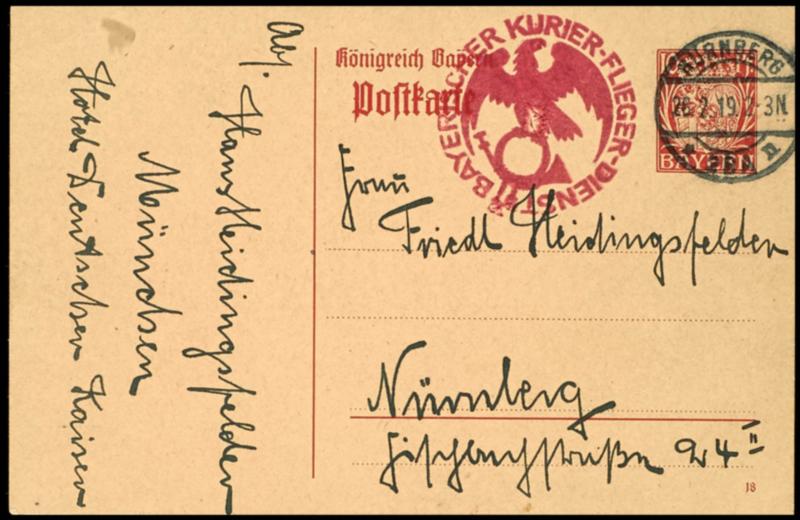 Abs.
Hans Heidingsfelder
München
Hotel Deutscher Kaiser
Königreich Bayern
Postkarte
BAYERISCHER KURIER-FLIEGER-DIENST
NÜRNBERG
26.2.19. 2-3N.
BAYERN
Frau
Friedl Heidingsfelder
Nürnberg
24 II
18